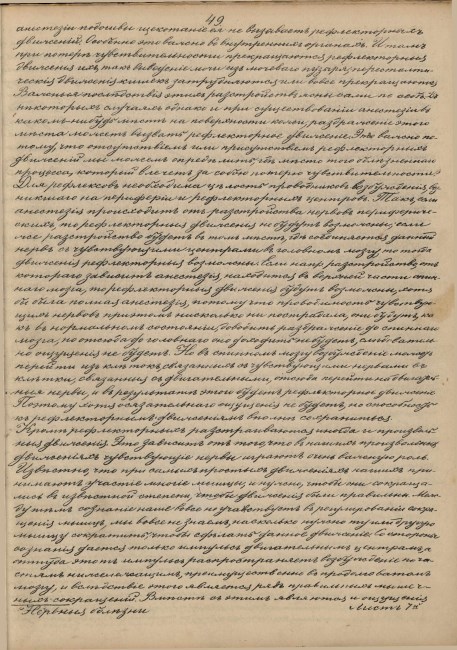 49
анестезіи подошвы щекотаніе ея не вызываетъ рефлекторныхъ
движеній. Особенно это важно во внутреннихъ органахъ. И тамъ
при потерѣ чувствительности прекращаются рефлекторныя
движенія ихъ, такъ выведеніе мочи изъ мочеваго пузыря, перистальти-
ческія движенія кишекъ затрудняются или вовсе прекращаются
Важныя послѣдствія этихъ разстройствъ ясны сами по себѣ. Въ
нѣкоторыхъ случаяхъ однако и при существованіи анестезіи въ
какомъ нибудь мѣстѣ на поверхности кожи, раздраженіе этого
мѣста можетъ вызвать рефлекторное движеніе. Это важно по-
тому, что отсутствіемъ или присутствіемъ рефлекторныхъ
движеній мы можемъ опредѣлить мѣсто того болѣзненнаго
процесса, который влечетъ за собою потерю чувствительности.
Для рефлексовъ необходима цѣлость проводниковъ возбужденія, воз-
никшаго на периферіи и рефлекторныхъ центровъ. Такъ, если
анестезія происходитъ отъ разстройства нервовъ периферичес-
кихъ, то рефлекторныя движенія не будутъ возможны; если
же разстройство будетъ въ томъ мѣстѣ, гдѣ соединяется данный
нервъ съ чувствующими центрами въ головномъ мозгу, то тогда
движенія рефлекторныя возможны. Если напр. разстройство, отъ
котораго зависитъ анестезія находится въ верхней части спин-
наго мозга, то рефлекторныя движенія будутъ возможны, хотя
бы была полная анестезія, потому что проводимость чувствую-
щихъ нервовъ при этомъ нисколько не пострадала, они будутъ, ка-
къ въ нормальномъ состояніи, доводить раздраженіе до спиннаго
мозга, но отсюда до головнаго оно доходить не будетъ, слѣдователь-
но ощущенія не будетъ. Но въ спинномъ мозгу возбужденіе можетъ
перейти изъ клѣтокъ, связанныхъ съ чувствующими нервами въ
клѣтки, связанныя съ двигательными, отсюда перейти на двигатель-
ные нервы, и въ результатѣ этого будетъ рефлекторное движеніе
Потому хотя сознательнаго ощущенія не будетъ, но способность
къ рефлекторнымъ движеніямъ вполнѣ сохранится.
Кромѣ рефлекторныхъ разстраиваются иногда и произволь-
ныя движенія. Это зависитъ отъ того, что въ нашихъ произвольныхъ
движеніяхъ чувствующіе нервы играютъ очень важную роль.
Извѣстно, что при самыхъ простыхъ движеніяхъ нашихъ при-
нимаютъ участіе многіе мышцы, и нужно, чтобы они сокраща-
лись въ извѣстной степени, чтобы движенія были правильны. Меж-
ду тѣмъ сознаніе наше вовсе не участвуетъ въ регулированіи сокра-
щенія мышцъ, мы вовсе не знаемъ, насколько нужно ту или другую
мышцу сократить, чтобы сдѣлать данное движеніе. Со стороны
сознанія дается только импульсъ двигательнымъ центрамъ, а
оттуда этотъ импульсъ распространяетъ возбужденіе по ча-
стямъ нижележащимъ, преимущественно въ продолговатомъ
мозгу, и вслѣдствіе этого является рядъ правильныхъ мышеч-
ныхъ сокращеній. Вмѣстѣ съ этимъ являются и ощущенія
Нервныя болѣзни Листъ 7й